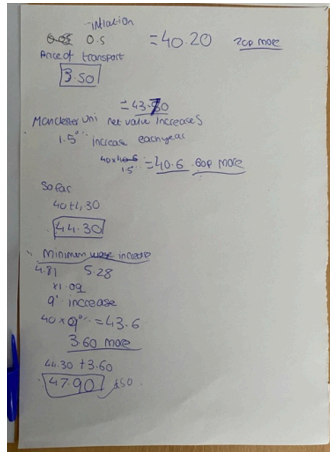 inflation
0.5 =40.20 20p more
Price of transport
3.50
=43.70
Manchester Uni net value increases
1.5% increase each year
40x
1.5 =40.6 .60p more
So far
40+4.30
44.30
Minimum wage increase
4.81 5.28
x1.09
9% increase
40 x 9% =43.6
3.60 more
44.30 +3.60
47.90